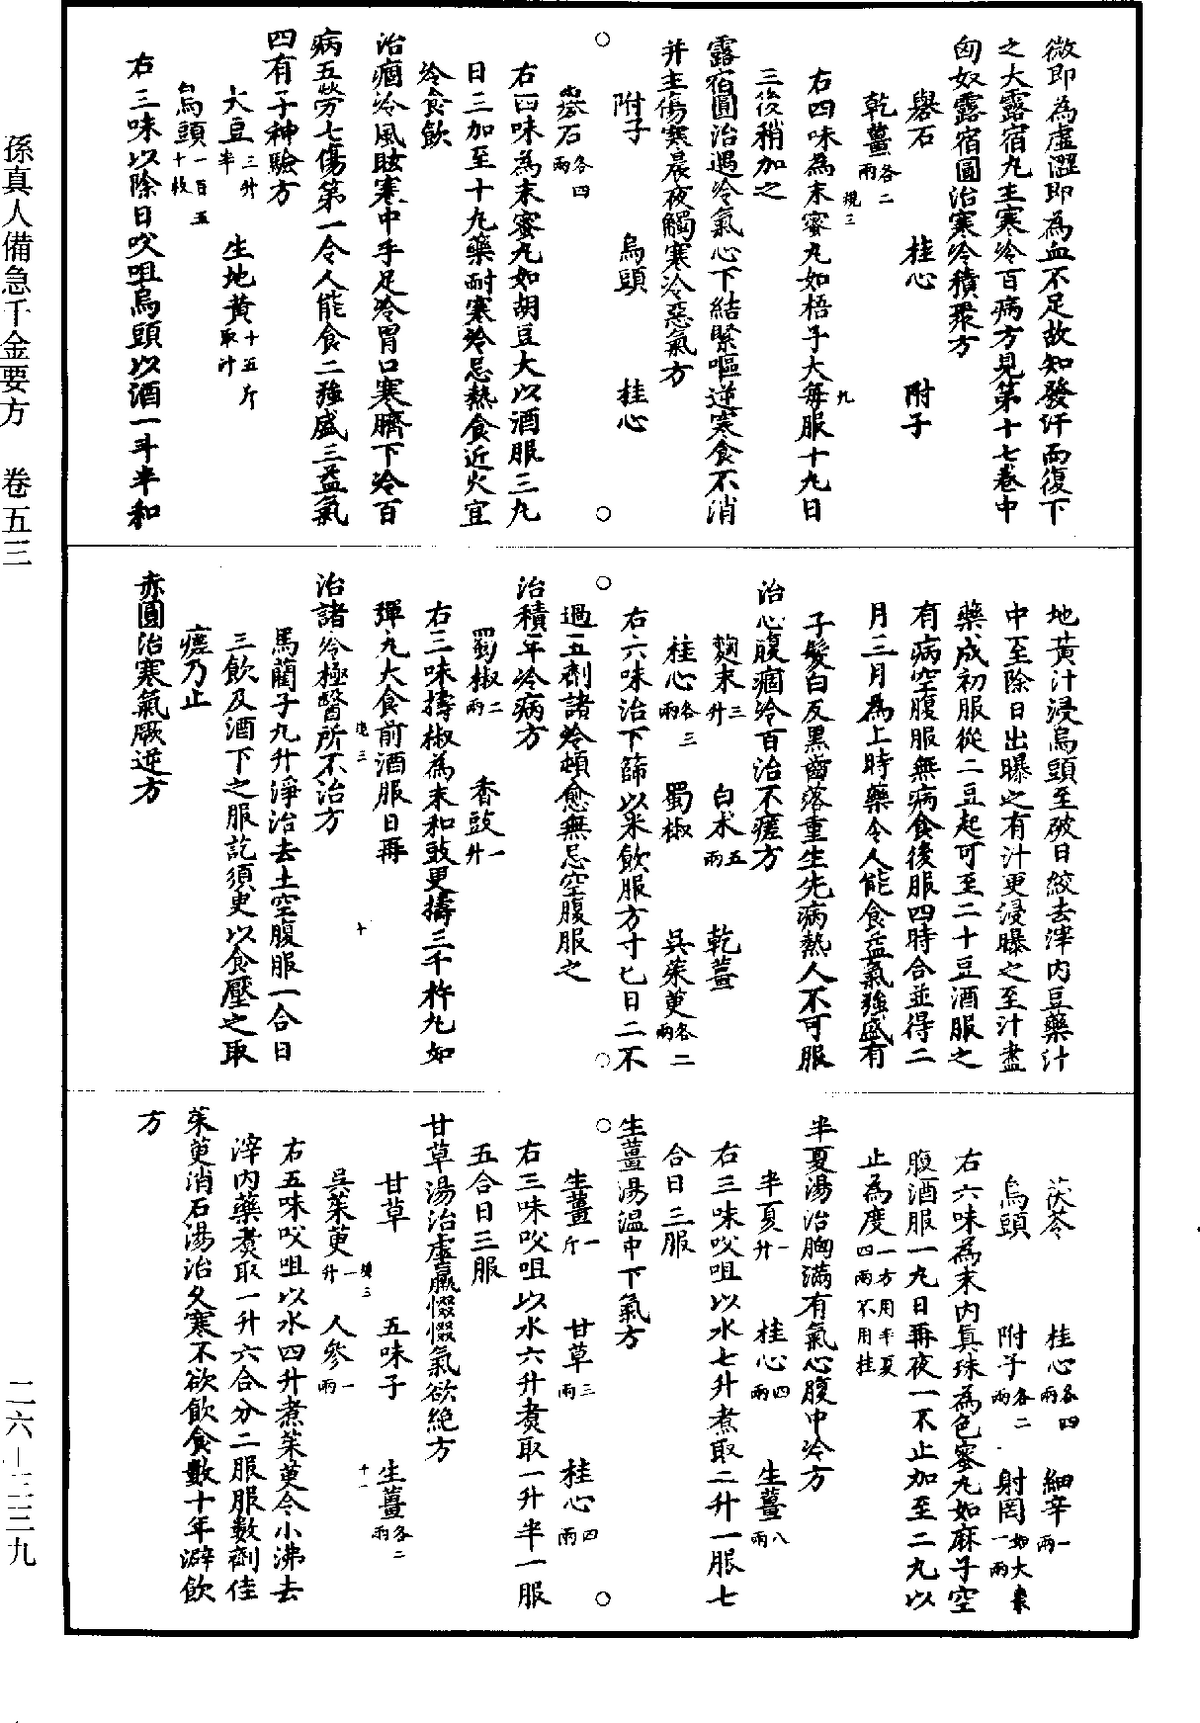 微即為虛澀即為血不足故知發汗而復下
之大露宿丸主寒冷百病方見第十七卷中
匈奴露宿圓治寒冷積聚方
礜石 桂心 附子
乾薑各二兩
規三 九
右四味為末蜜丸如梧子大每服十丸日
三後稍加之
露宿圓治遇冷氣心下結緊嘔逆寒食不消
并主傷寒晨夜觸寒冷惡氣方
附子 烏頭 桂心
礜石各四兩
右四味為末蜜丸如胡豆大以酒服三丸
日三加至十丸藥耐寒冷忌熱食近火宜
冷食飲
治痼冷風眩寒中手足冷胃口寒臍下冷百
病五勞七傷第一令人能食二強盛三益氣
四有子神驗方
大豆三升半 生地黃十五斤取汁
烏頭一百五十枚
右三味以除日㕮咀烏頭以酒一斗半和
地黃汁浸烏頭至破日絞去滓內豆藥汁
中至除日出曝之有汁更浸曝之至汁盡
藥成初服從二豆起可至二十豆酒服之
有病空腹服無病食後服四時合並得二
月三月為上時藥令人能食益氣強盛有
子髮白反黑齒落重生先病熱人不可服
治心腹痼冷百治不瘥方
麴末三升 白朮五兩 乾薑
桂心各三兩 蜀椒 吳茱萸各二兩
右六味治下篩以米飲服方寸匕日二不
過五劑諸冷頓愈無忌空腹服之
治積年冷病方
蜀椒二兩 香豉一升
右三味擣椒為末和豉更擣三千杵丸如
彈丸大食前酒服日再
規三 十
治諸冷極醫所不治方
馬藺子九升淨治去土空腹服一合日
三飲及酒下之服訖須臾以食壓之取
瘥乃止
赤圓治寒氣厥逆方
茯苓 桂心各四兩 細辛一兩
烏頭 附子各二兩 射罔如大棗一兩
右六味為末內真珠為色蜜丸如麻子空
腹酒服一丸日再夜一不止加至二丸以
止為度一方用半夏四兩不用桂
半夏湯治胸滿有氣心腹中冷方
半夏一升 桂心四兩 生薑八兩
右三味㕮咀以水七升煮取二升一服七
合日三服
生薑湯溫中下氣方
生薑一斤 甘草三兩 桂心四兩
右三味㕮咀以水六升煮取一升半一服
五合日三服
甘草湯治虛羸惙惙氣欲絕方
甘草 五味子 生薑各二兩
規三 十一
吳茱萸一升 人參一兩
右五味㕮咀以水四升煮茱萸令小沸去
滓內藥煮取一升六合分二服服數劑佳
茱萸消石湯治久寒不欲飲食數十年澼飲
方
孫真人備急千金要方 卷五三
二六—三三九